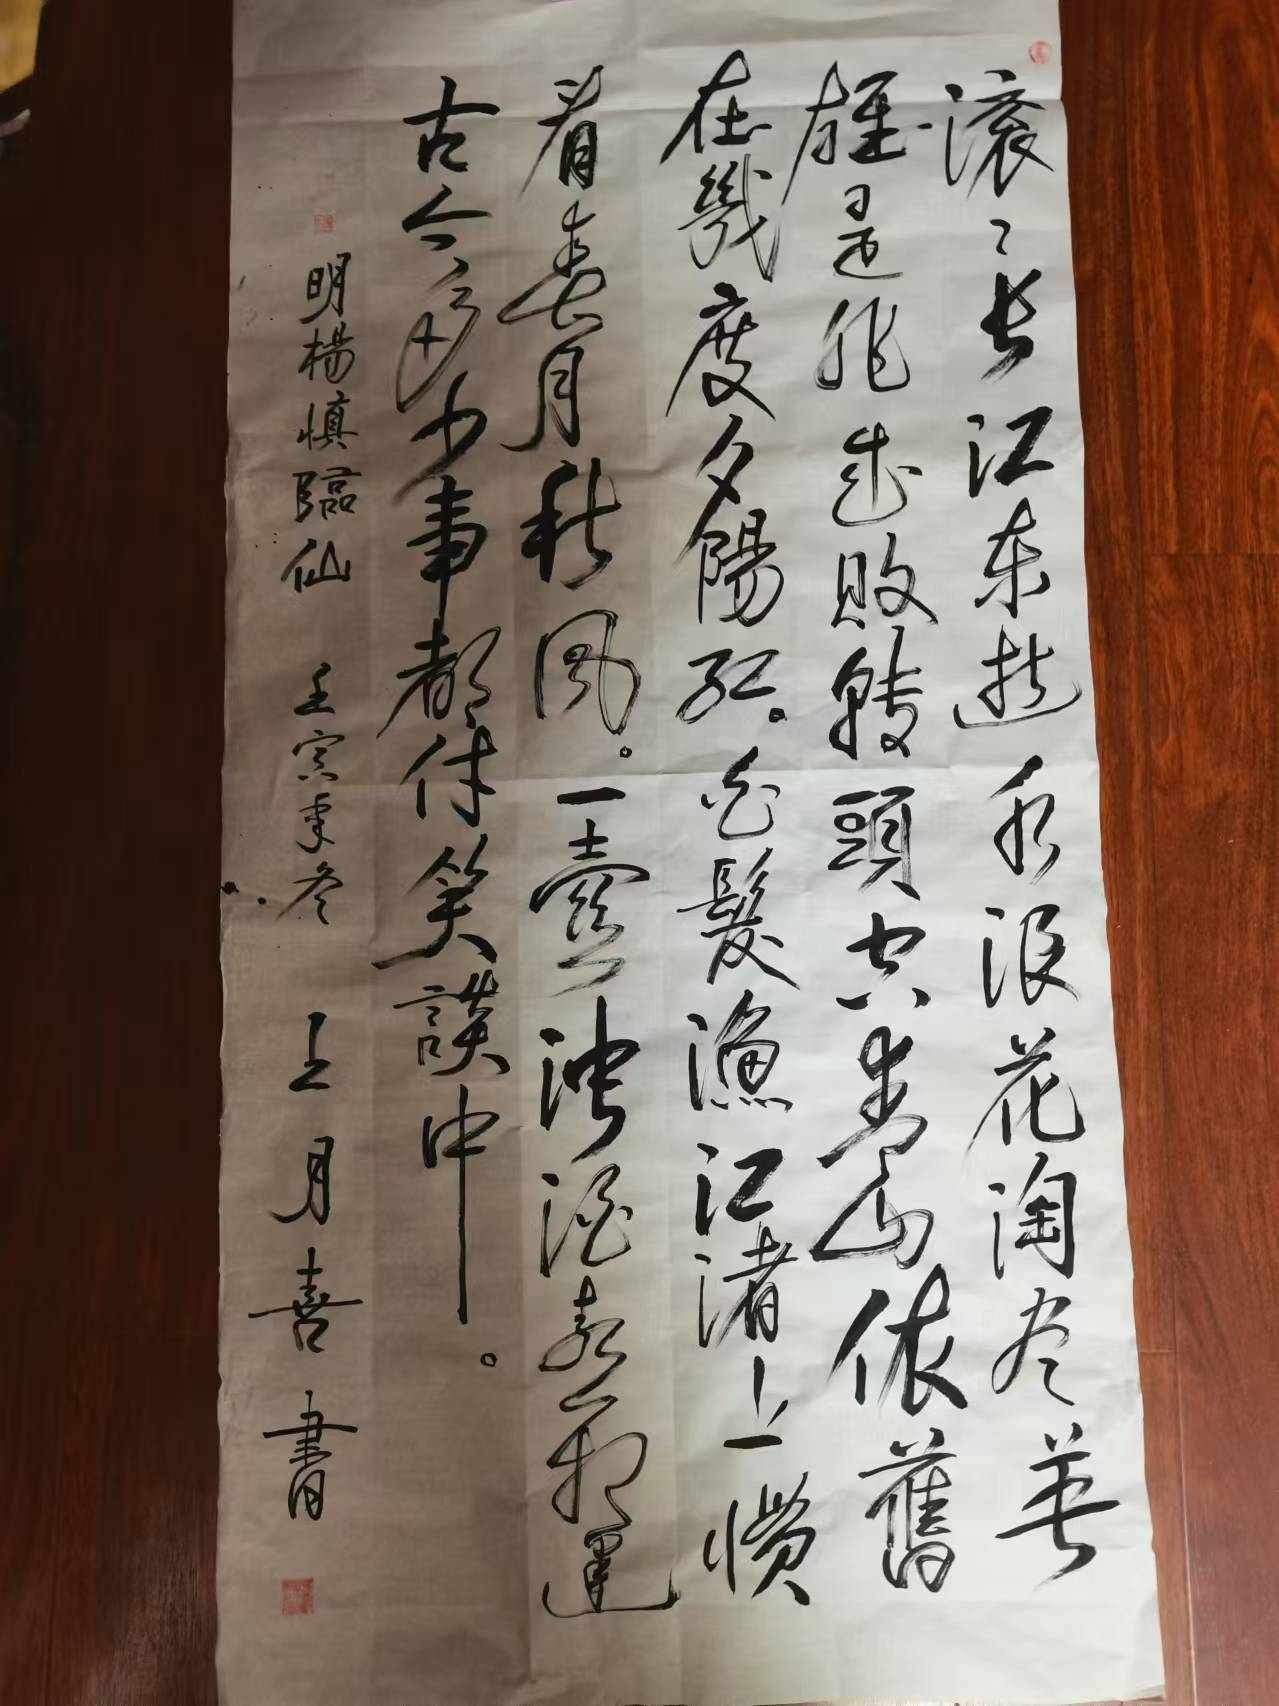 滚〻长江东逝水浪花淘尽英
雄是非成敗转頭空青山依舊
在幾度夕陽红。白髮漁江渚上惯
看春月秋风。一壶浊酒喜相逢
古今多少事都付笑談中。
明楊慎臨仙 壬寅年冬 王月喜書